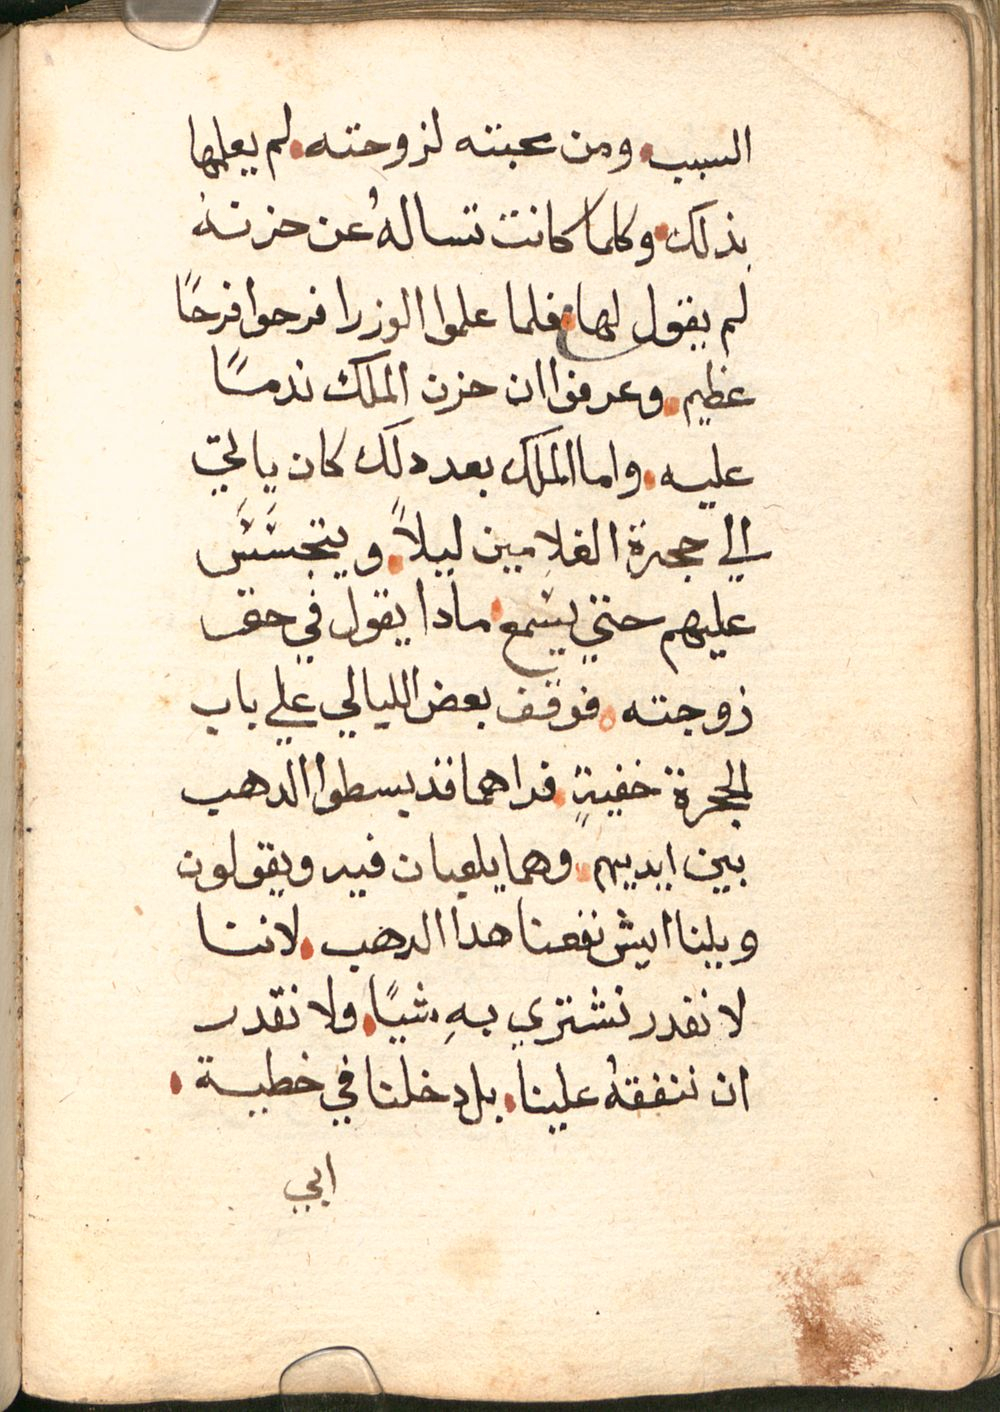 السبب ومن محبته لزوجته لم يعلمها
بذلك وكلما كانت تساله عن حزنه
لم يقول لها فلما علموا الوزرا فرحوا فرحًا
عظيم وعرفوا ان حزن الملك ندمًا
عليه واما الملك بعد دلك كان ياتي
الي حجرة الغلامين ليلاً ويتجسس
عليهم حتي يسمع مادا يقول في حق
زوجته فوقف بعض الليالي علي باب
الحجرة خفيةٍ فراهما قد بسطوا الدهب
بين ايديهم وهما يلعبان فيه ويقولون
ويلنا ايش نفعنا هدا الدهب لاننا
لا نقدر نشتري بهِ شيًا ولا نقدر
ان ننفقهُ علينا بل دخلنا في خطية
ابي